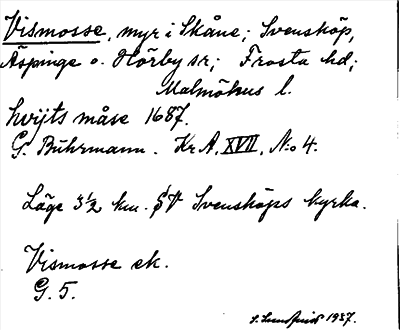 Vismosse, myr i Skåne; Svensköp,
Äspinge o. Hörby sr; Frosta hd;
Malmöhus l.
hvijts måse 1687.
G. Buhrmann. Kr A. XVII. No 4.
Läge 3½ km. SV Svensköps kyrka.
Vismosse ek.
G. 5.
1937.